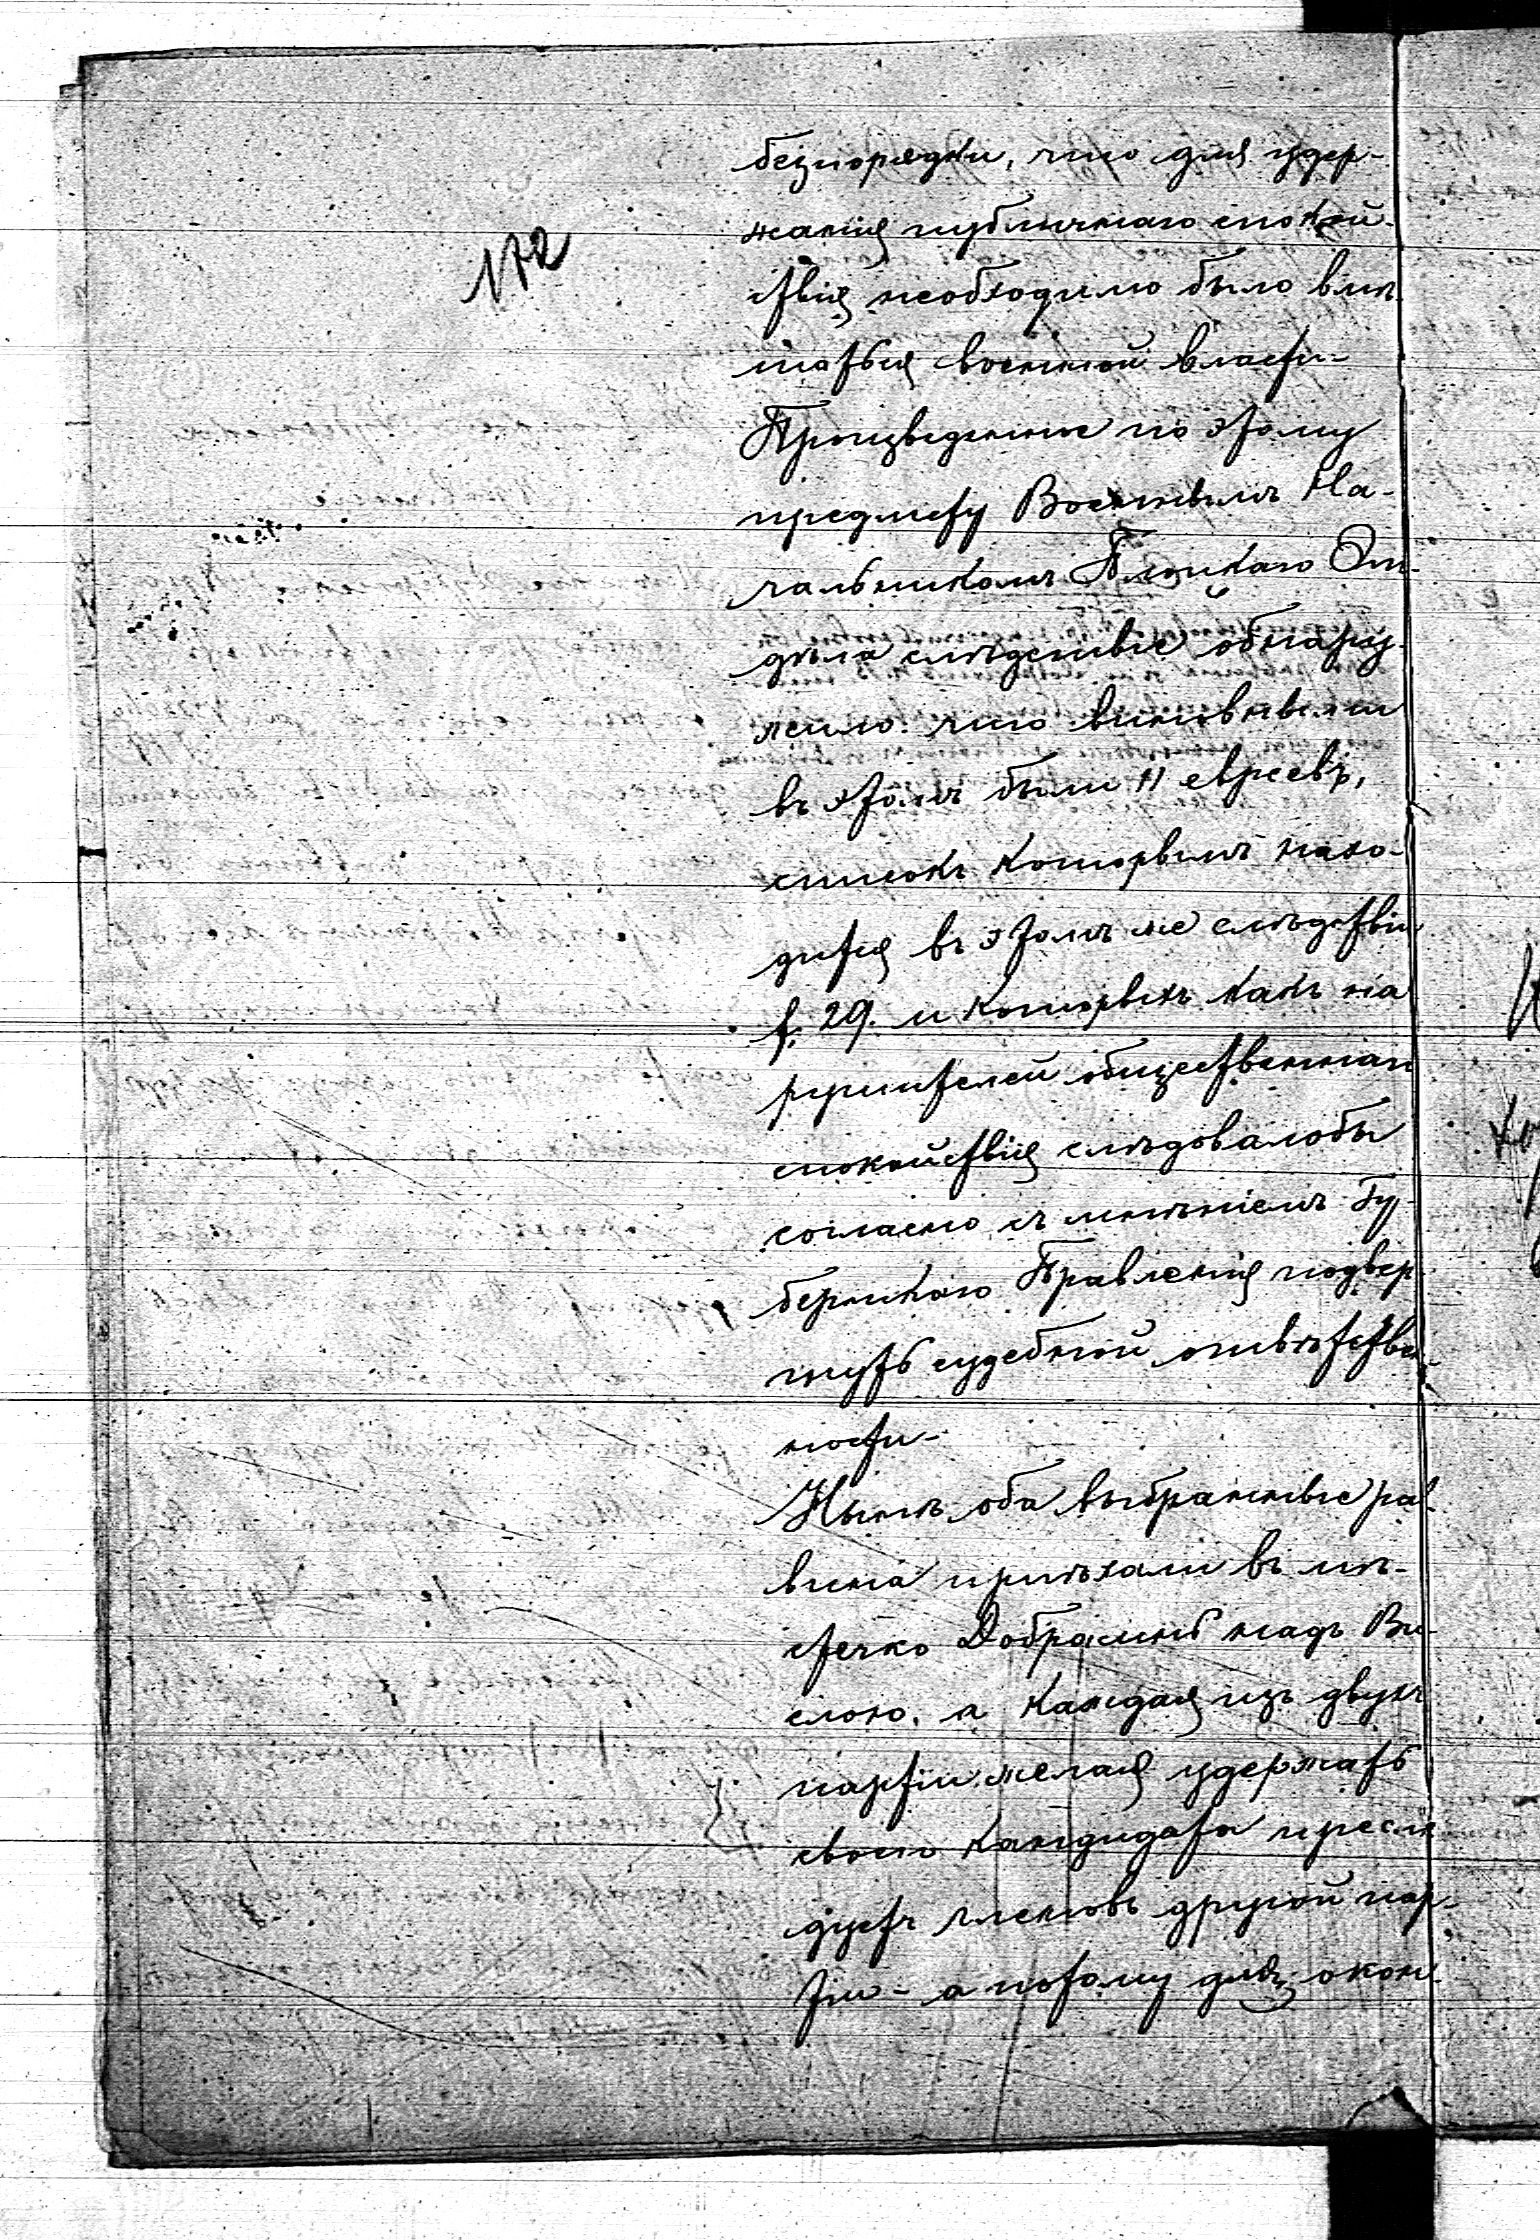 172
безпорядки, что для удер-
жанія публичнаго спокой-
ствія необходимо было вмѣ-
шаться военной власти-
Произведенное по этому
предмету Военнымъ На-
чальникомъ Плоцкаго От-
дѣла слѣдствіе обнару-
жило. что виновными
въ этомъ были 11 евреевъ,
списокъ которымъ нахо-
дится въ этомъ же слѣдствіи
f. 29. и которыхъ какъ на
рушителей общественнаго
спокойствія слѣдовалобы
согласно съ мнѣніемъ Гу-
бернскаго Правленія подвер
гнуть судебной отвѣтствен-
ности-
Нынѣ оба выбранные ра-
вина пріѣхали въ мѣ-
стечко Добржинь надъ Ви-
слою, а каждая изъ двухъ
партіи желая удержать
своего кандидата преслѣ
дуетъ членовъ другой пар-
тіи - а потому для окон-